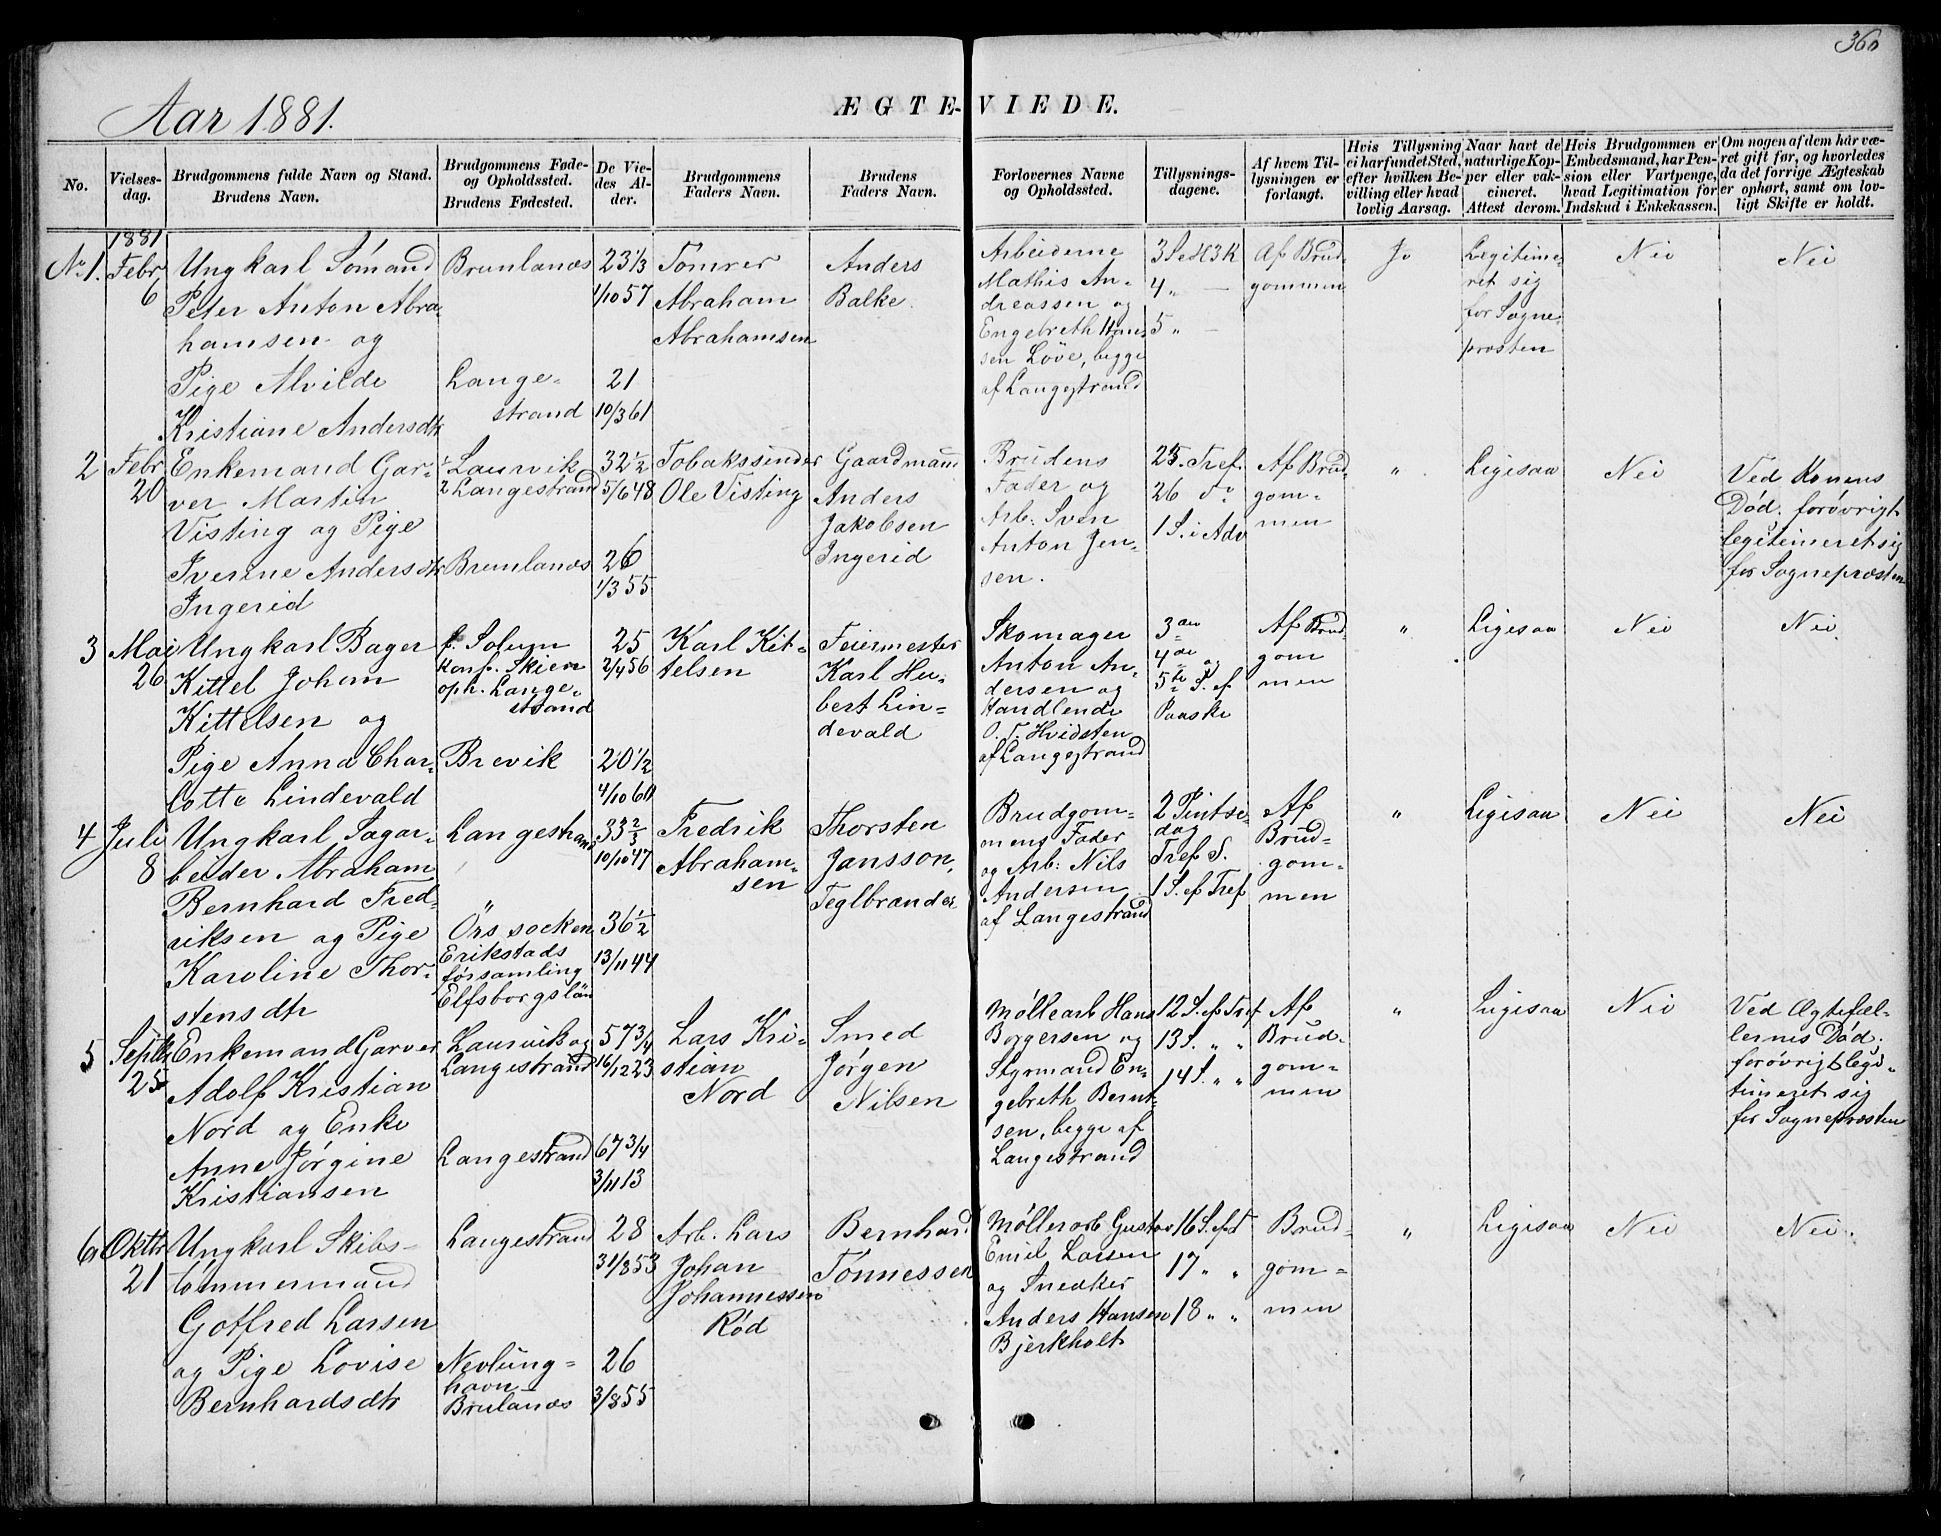 360
Aar 1881.
ÆGTE-VIEDE.
No.
Vielses-
dag.
Brudgommens fulde Navn og Stand.
Brudens Navn.
Brudgommens Føde-
og Opholdssted.
Brudens Fødested.
De Vie-
des Al-
der.
Brudgommens
Faders Navn.
Brudens
Faders Navn.
Forlovernes Navne
og Opholdssted.
Tillysnings-
dagene.
Af hvem Til-
lysningen er
forlangt.
Hvis Tillysning
ei har fundet Sted,
efter hvilken Be-
villing eller hvad
lovlig Aarsag.
Naar havt de
naturlige Kop-
per eller vak-
cineret.
Attest derom.
Hvis Brudgommen er
Embedsmand, har Pen-
sion eller Vartpenge,
hvad Legitimation for
Indskud i Enkekassen.
Om nogen af dem har væ-
ret gift før, og hvorledes
da det forrige Ægteskab
er ophørt, samt om lov-
ligt Skifte er holdt.
No 1.
1881
Febr
6
Ungkarl Sömand
Peter Anton Abra-
hamsen og
Pige Alvilde
Kristiane Andersdtr
Brunlanæs
Lange-
strand
23 1/3
1/10 57
21
10/3 61
Tömrer
Abraham
Abrahamsen
Anders
Balke
Arbeiderne
Mathis An-
dreassen og
Engebreth Han-
sen Löve, begge
af Langestrand
3 S e H 3 K
4 „ —
5 „ —
Af Brud-
gommen
Jo
Legitime-
ret sig
for Sogne-
præsten
Nei
Nei
2
Febr
20
Enkemand Gar-
ver Martin
Visting og Pige
Iverine Andersdtr
Ingerid
1 Laurvik
2 Langestrand
Brunlanæs
32 1/2
5/6 48
26
1/3 55
Tobakssinder
Ole Visting
Gaardmann
Anders
Jakobsen
Ingerid
Brudens
Fader og
Arb. Sven
Anton Jen-
sen.
25. Tref.
26 do
1 S. i Adv
Af Brud-
gom-
men
„
Ligesaa
Nei
Ved Konens
Död. forøvrigt
legitimeret sig
for Sognepræsten
3
Mai
26
Ungkarl Bager
Kittel Johan
Kittelsen og
Pige Anna Char-
lotte Lindevald
f. Solum
konf. Skien
oph. Lange-
strand
Brevik
25
2/4 56
20 1/2
4/10 60
Karl Kit-
telsen
Feiermester
Karl Hu-
bert Lin-
devald
Skomager
Anton An-
dersen og
Handlende
O. T. Hvidsten
af Langestrand
3die
4de og
5te S. ef
Paaske
Af Brud-
gom
men
„
Ligesaa
Nei
Nei.
4
Juli
8
Ungkarl Sagar-
beider Abraham
Bernhard Fred-
riksen og Pige
Karoline Thor-
stensdtr
Langestrand
„
Örs socken
Erikstads
församling
Elfsborgslän
33 2/3
10/10 47
36 1/2
13/11 44
Fredrik
Abraham-
sen
Thorsten
Jansson,
Teglbrænder
Brudgom-
mens Fader
og Arb. Nils
Andersen
af Langestrand
2 Pintse-
dag
Tref S.
1 S. ef Tref
Af
Brud-
gom-
men
„
Ligesaa
Nei
Nei
5
Septbr
25
Enkemand Garver
Adolf Kristian
Nord og Enke
Anne Jørgine
Kristiansen
Laurvik og
Langestrand
Langestrand
57 3/4
16/12 23
67 3/4
3/11 13
Lars Kri-
stian
Nord
Smed
Jørgen
Nilsen
Møllearb Hans
Borgersen og
Styrmand En-
gebreth Bernt-
sen, begge af
Langestrand
12 S. ef Tref
13 S. „ „
14 S. „ „
Af
Brud-
gom-
men
„
Ligesaa
Nei
Ved Ægtefæl-
lernes Død,
forøvrigt legi-
timeret sig
for Sognepræsten
6
Oktbr
21
Ungkarl Skibs-
tömmermand
Gotfred Larsen
og Pige Lovise
Bernhardsdtr
Langestrand
Nevlung-
havn
Brunlanæs
28
31/8 53
26
3/8 55
Arb. Lars
Johan
Johannessen
Rød
Bernhard
Tönnessen
Møllerarb Gustav
Emil Larsen
og Snedker
Anders Hansen
Bjerkholt
16 S. ef T
17 „ „
18 „ „
Brud-
gom-
men
„
Ligesaa
Nei
Nei.